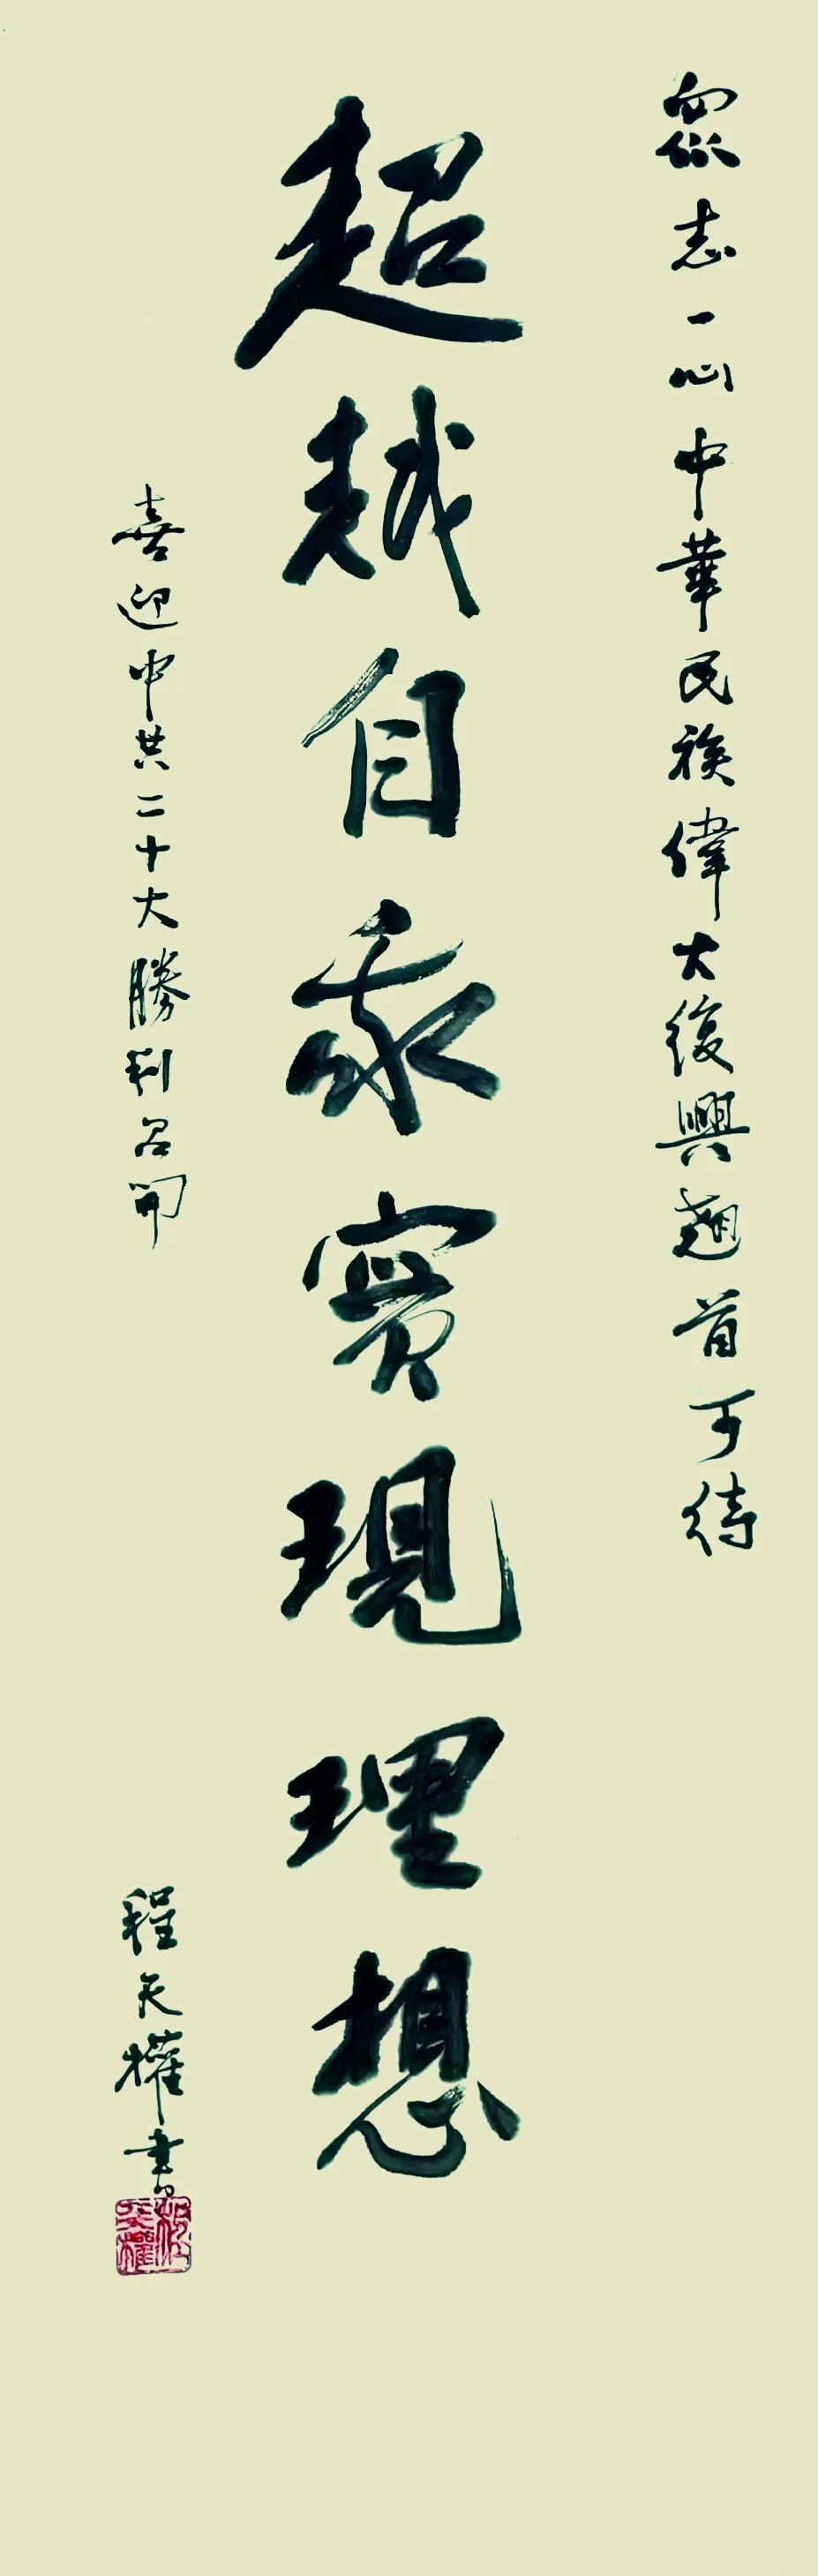 眾志一心中華民族偉大復興翹首可待
超越自我實現理想
喜迎中共二十大勝利召開
程天權書